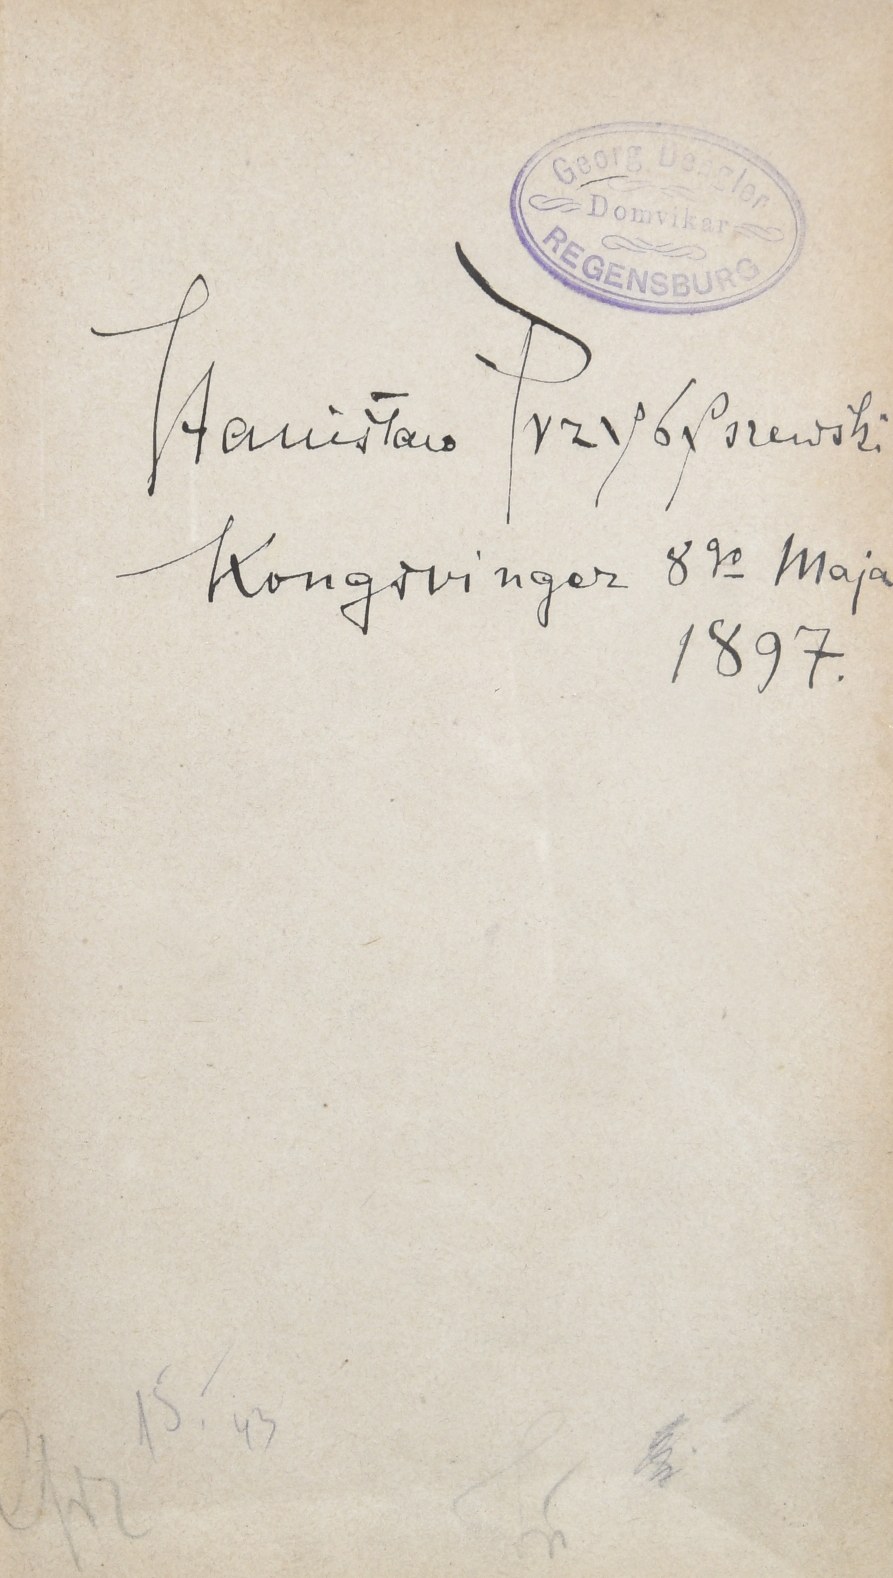 Georg Dengler
Domvikar
REGENSBURG
Stanisław Przybyszewski
Kongsvinger 8go Maja
1897.
15. 43